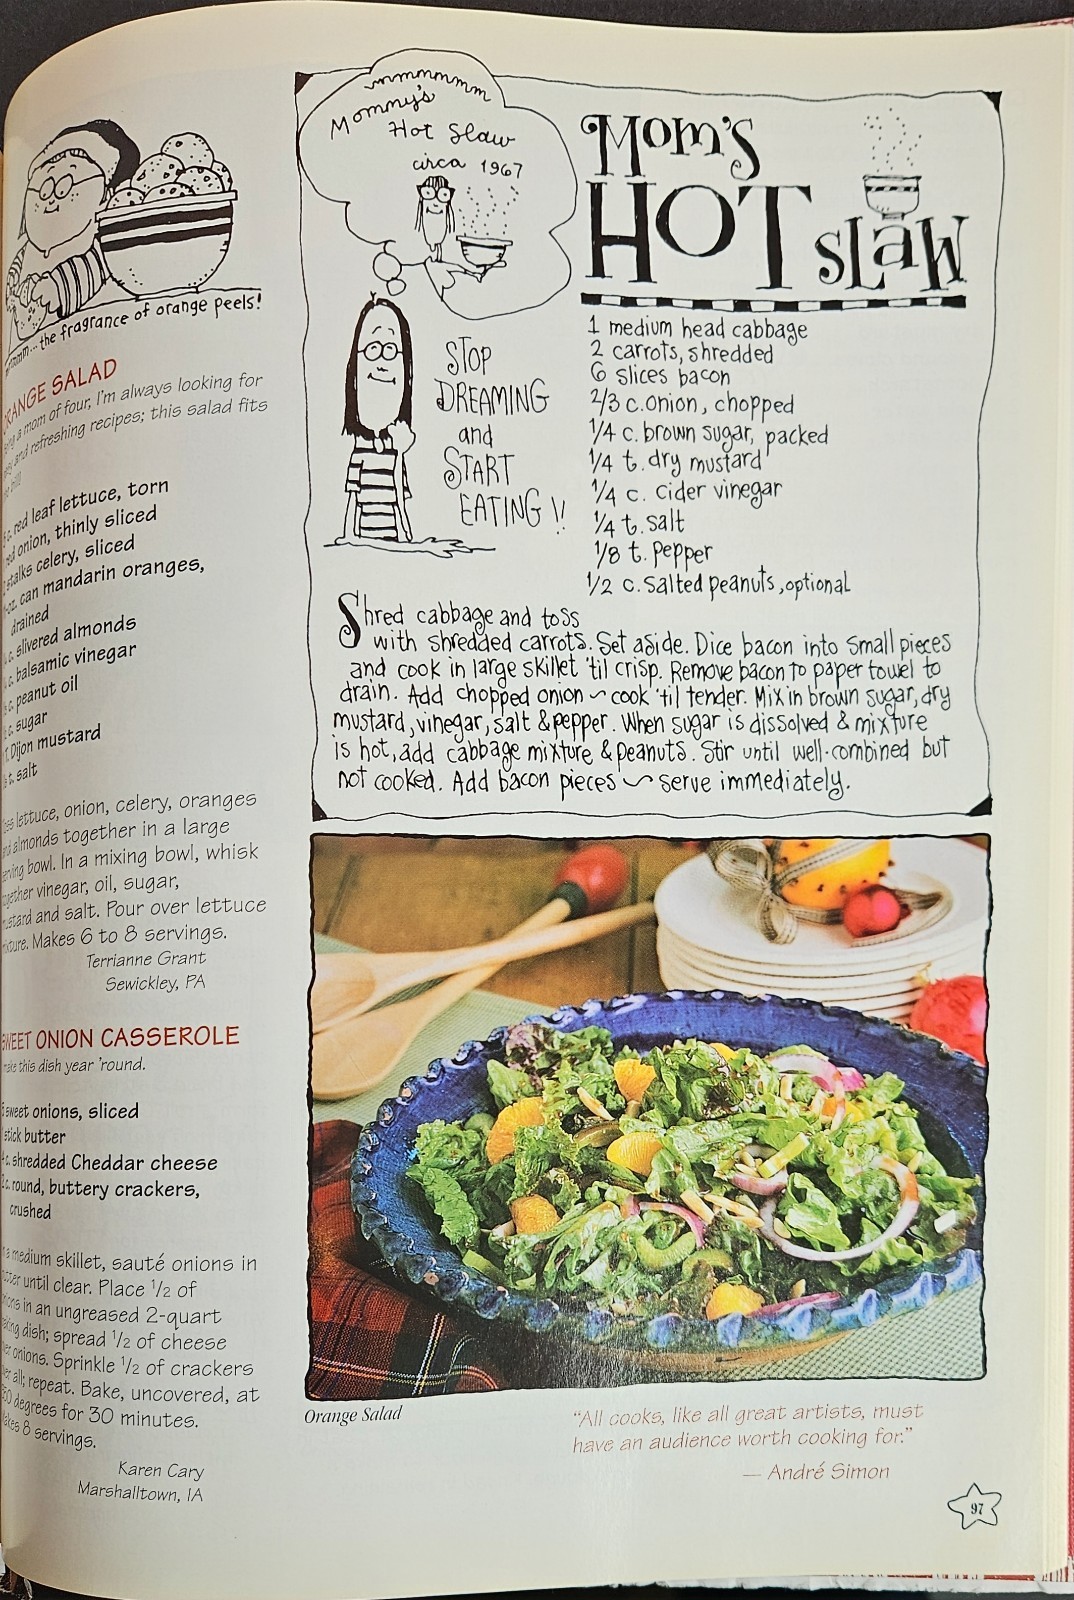 mmm... the fragrance of orange peels!
ORANGE SALAD
a mom of four, I'm always looking for
and refreshing recipes; this salad fits
bill!
c. red leaf lettuce, torn
red onion, thinly sliced
stalks celery, sliced
oz. can mandarin oranges,
drained
c. slivered almonds
c. balsamic vinegar
c. peanut oil
c. sugar
t. Dijon mustard
t. salt
lettuce, onion, celery, oranges
almonds together in a large
serving bowl. In a mixing bowl, whisk
together vinegar, oil, sugar,
mustard and salt. Pour over lettuce
mixture. Makes 6 to 8 servings.
Terrianne Grant
Sewickley, PA
SWEET ONION CASSEROLE
make this dish year 'round.
sweet onions, sliced
stick butter
c. shredded Cheddar cheese
c. round, buttery crackers,
crushed
a medium skillet, sauté onions in
butter until clear. Place 1/2 of
onions in an ungreased 2-quart
baking dish; spread 1/2 of cheese
over onions. Sprinkle 1/2 of crackers
over all; repeat. Bake, uncovered, at
degrees for 30 minutes.
Makes 8 servings.
Karen Cary
Marshalltown, IA
mmmmmmm
Mommy's
Hot Slaw
circa 1967
STOP
DREAMING
and
START
EATING!!
Mom's
HOT slaw
1 medium head cabbage
2 carrots, shredded
6 slices bacon
2/3 c. onion, chopped
1/4 c. brown sugar, packed
1/4 t. dry mustard
1/4 c. cider vinegar
1/4 t. salt
1/8 t. pepper
1/2 c. salted peanuts, optional
Shred cabbage and toss
with shredded carrots. Set aside. Dice bacon into small pieces
and cook in large skillet 'til crisp. Remove bacon to paper towel to
drain. Add chopped onion ~ cook 'til tender. Mix in brown sugar, dry
mustard, vinegar, salt & pepper. When sugar is dissolved & mixture
is hot, add cabbage mixture & peanuts. Stir until well-combined but
not cooked. Add bacon pieces ~ serve immediately.
Orange Salad
"All cooks, like all great artists, must
have an audience worth cooking for."
— André Simon
97